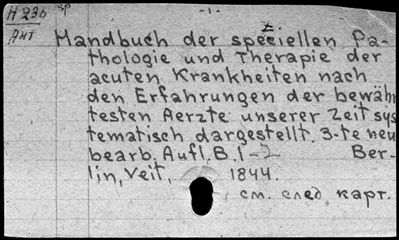 H 23b sp -1-
Ант
Handbuch der speziellen Pa-
thologie und Therapie der
acuten Krankheiten nach
den Erfahrungen der bewähr
testen Aerzte unserer Zeit sys
tematisch dargestellt. 3-te neu
bearb. Aufl. B. 1-2 Ber-
lin, Veit, 1844.
см. след. карт.